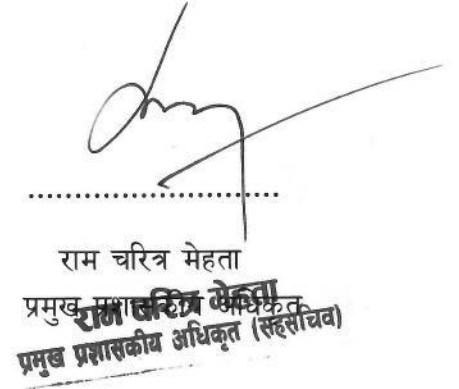 राम चरित्र मेहता
प्रमुख प्रशासकीय अधिकृत
राम चरित्र मेहता
प्रमुख प्रशासकीय अधिकृत (सहसचिव)